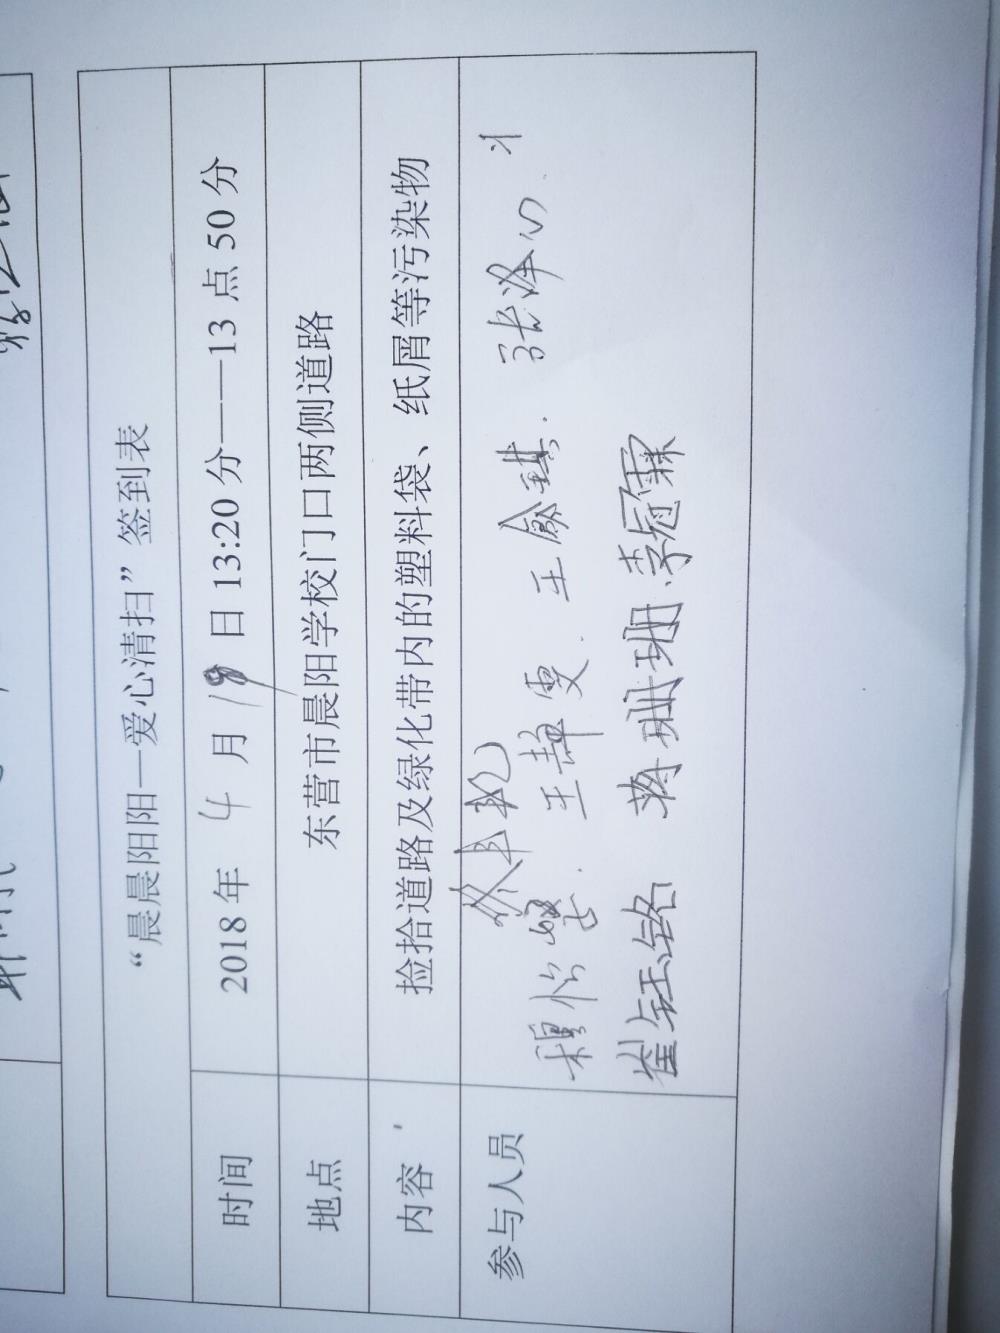 “晨晨阳阳—爱心清扫”签到表
时间 2018 年 4 月 19 日 13:20 分——13 点 50 分
地点 东营市晨阳学校门口两侧道路
内容 捡拾道路及绿化带内的塑料袋、纸屑等污染物
参与人员
穆怡 王静雯. 王愈琪. 张泽
崔钰铭 蒋珊珊 李冠霖